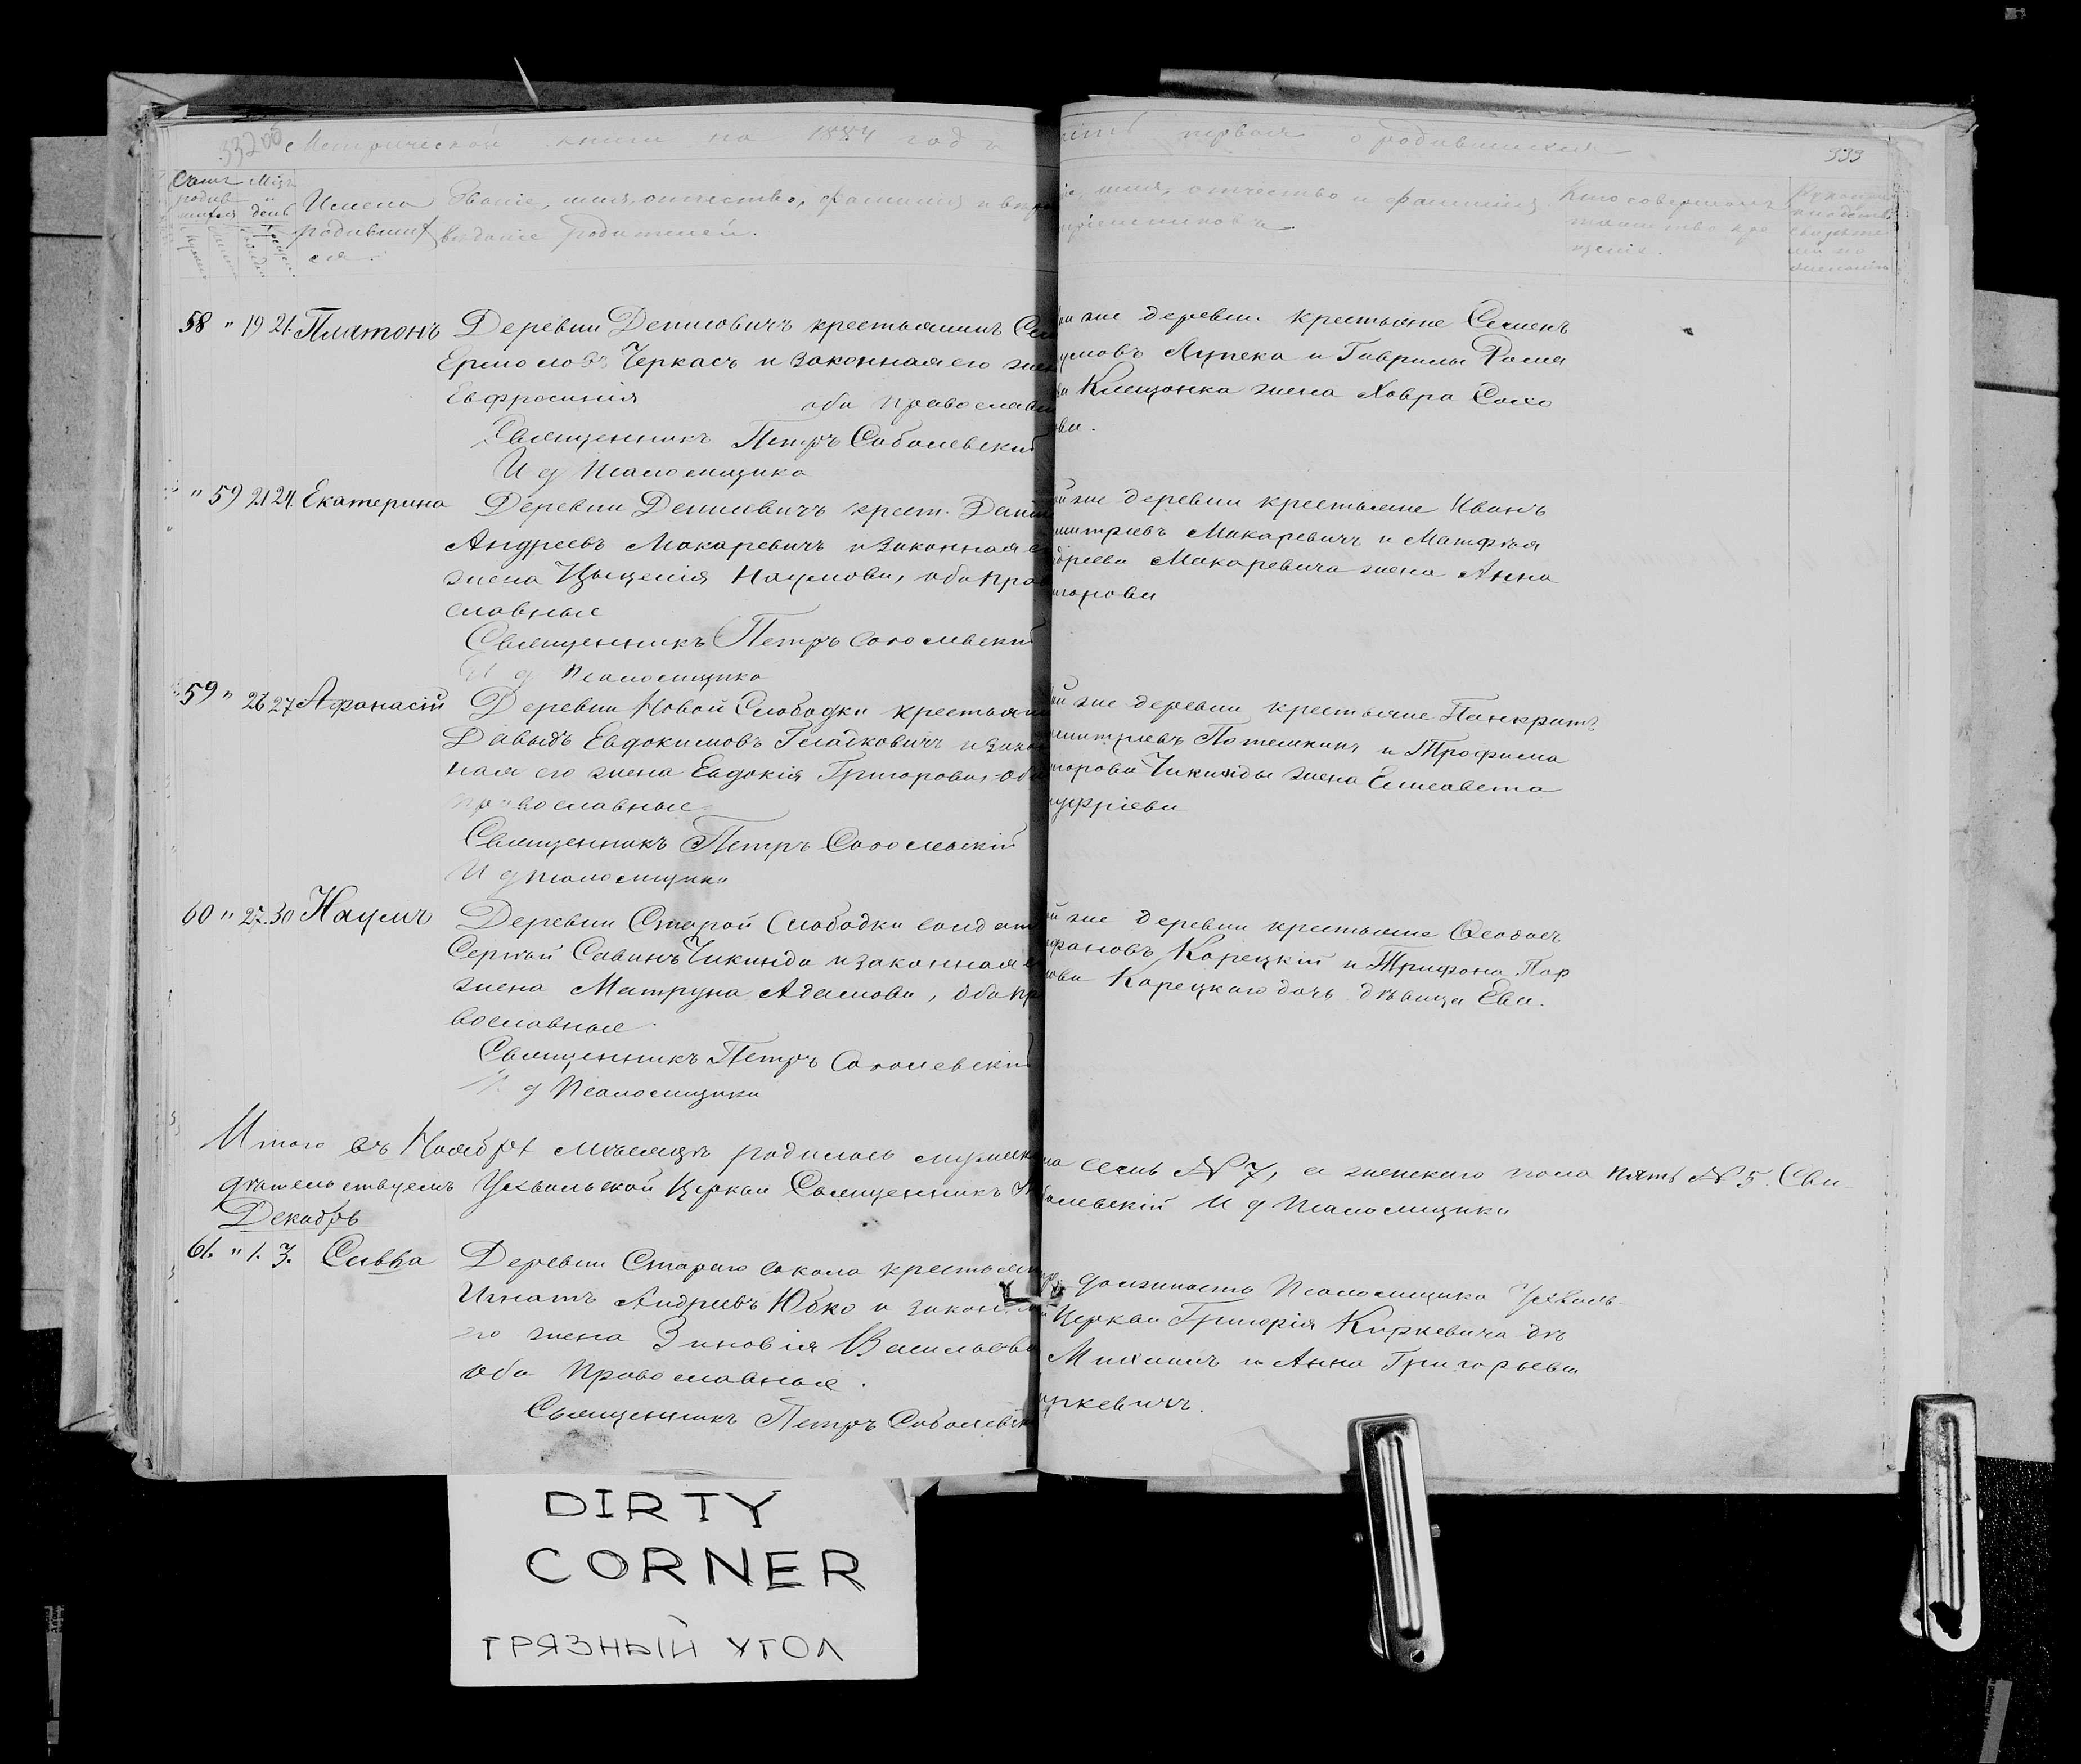 Метрической книги на 1884 годъ
первая о родившихся
333
Счетъ Мѣс.
родив день
Имена
родивших
ся.
Званіе, имя, отчество, фамилія и
вѣданіе родителей.
имя, отчество и фамилія
Кто совершалъ
таинство кре
щенія.
58 " 19 21. Платонъ
Деревни Денисовичъ крестьянинъ
Ермоловъ Черкасъ и законная его
Евфросинія оба православ
Священникъ Петръ Соболевскій
И д Псаломщика
же деревни крестьяне Семенъ
Лупека и Гаврилы
Клещонка жена
" 59 21 24. Екатерина
Деревни Денисовичъ крест.
Андреевъ Макаревичъ и законная
жена Наумова, оба пра
славные
Священникъ Петръ Соболевскій
И д Псаломщика
же деревни крестьяне Иванъ
митріевъ Макаревичъ и Матфея
дреева Макаревича жена Анна
59 " 26 27 Афанасій
Деревни Новой Слободки крестьян
Давыдъ Евдокимовъ Гладковичъ и
ная его жена Евдокія Григорова, оба
православные
Священникъ Петръ Соболевскій
И д псаломщика
же деревни крестьяне Панкратъ
митріевъ Потемкинъ и Трофима
Чикинды жена Елисавета
нуфріева
60 " 27. 30 Наумъ
Деревни Старой Слободки солдат
Сергѣй Савинъ Чикинда и законная
жена Матруна Адамова, оба пр
вославные.
Священникъ Петръ Соболевскій
И д Псаломщика
же деревни крестьяне
Корецкій и Трифона
Корецкаго дочь дѣвица Ева.
Итого въ Ноябрѣ мѣсяцѣ родилось мужеска
седмь № 7, а женскаго пола пять № 5. Сви
дѣтельствуемъ Ухвальской Церкви Священникъ
болевскій И д Псаломщика
Декабрь
61. " 1. 3. Савва
Деревни Стараго Сокола крестьян
Игнатъ Андреевъ Юбко и закон
го жена Зиновія Васильева
оба Православные.
Священникъ Петръ Соболевск
должность Псаломщика Ухваль
Церкви Григорія Киркевича дѣ
Михаилъ и Анна Григорьева
иркевичъ.
DIRTY
CORNER
ГРЯЗНЫЙ УГОЛ